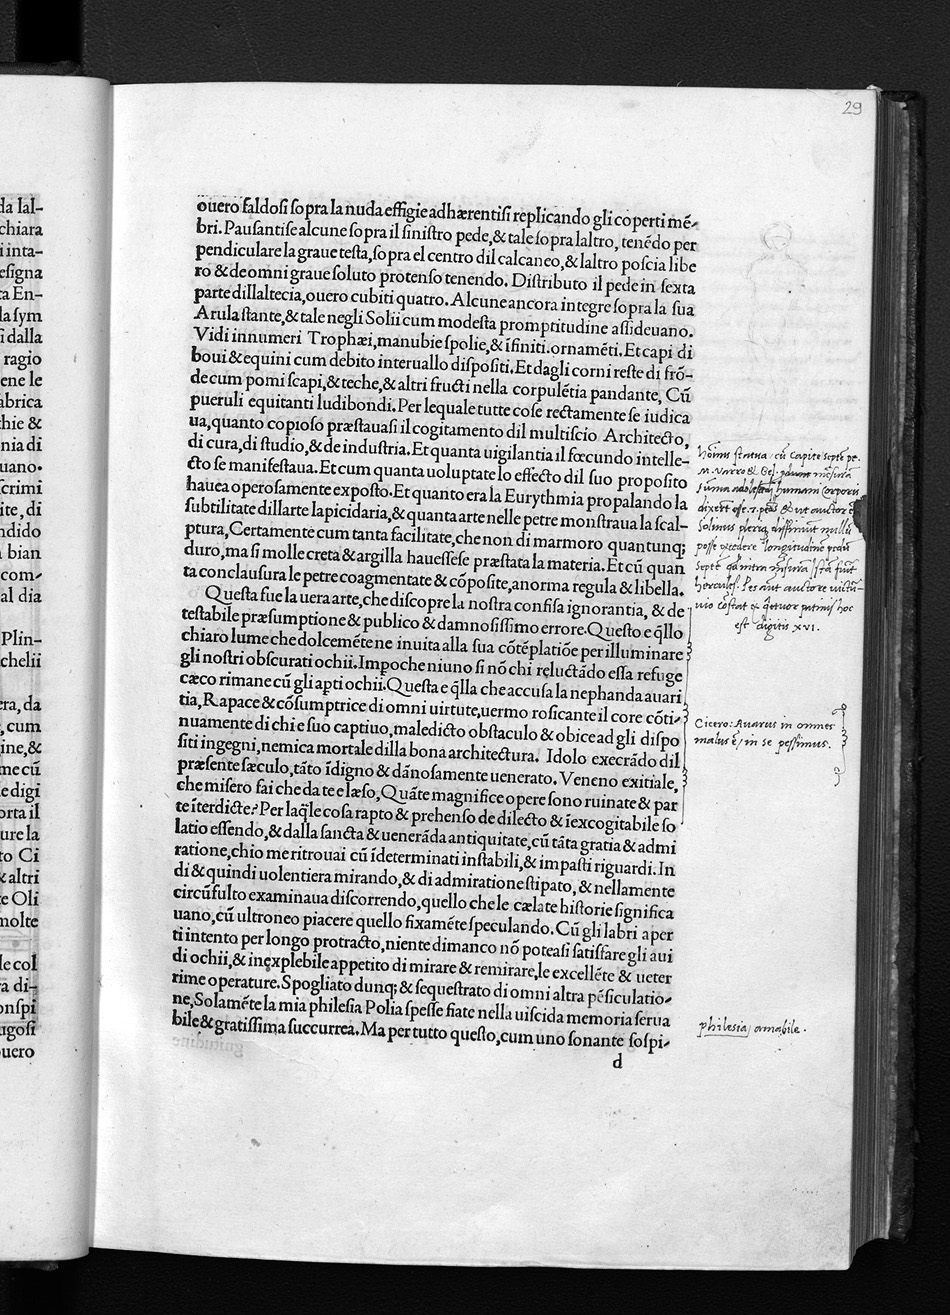 29
ouero faldosi sopra la nuda effigie adhærentisi replicando gli coperti mẽ-
bri. Pausantise alcune sopra il sinistro pede, & tale sopra laltro, tenẽdo per
pendiculare la graue testa, sopra el centro dil calcaneo, & laltro poscia libe
ro & de omni graue soluto protenso tenendo. Distributo il pede in sexta
parte dillaltecia, ouero cubiti quatro. Alcune ancora integre sopra la sua
Arula stante, & tale negli Solii cum modesta promptitudine assideuano.
Vidi innumeri Trophæi, manubie spolie, & ĩfiniti. ornamẽti. Et capi di
boui & equini cum debito interuallo dispositi. Et dagli corni reste di frõ-
de cum pomi scapi, & teche, & altri fructi nella corpulẽtia pandante, Cũ
pueruli equitanti ludibondi. Per lequale tutte cose rectamente se iudica
ua, quanto copioso præstauasi il cogitamento dil multiscio Architecto,
di cura, di studio, & de industria. Et quanta uigilantia il fœcundo intelle-
cto se manifestaua. Et cum quanta uoluptate lo effecto dil suo proposito
hauea operosamente exposto. Et quanto era la Eurythmia propalando la
subtilitate dillarte lapicidaria, & quanta arte nelle petre monstraua la scal-
ptura, Certamente cum tanta facilitate, che non di marmoro quantunq;
duro, ma si molle creta & argilla hauessese præstata la materia. Et cũ quan
ta conclausura le petre coagmentate & cõposite, anorma regula & libella.
Questa fue la uera arte, che discopre la nostra confisa ignorantia, & de
testabile præsumptione & publico & damnosissimo errore. Questo e q̃llo
chiaro lume che dolcemẽte ne inuita alla sua cõtẽplatiõe per illuminare
gli nostri obscurati ochii. Impoche niuno si nõ chi reluctãdo essa refuge
cæco rimane cũ gli apti ochii. Questa e q̃lla che accusa la nephanda auari
tia, Rapace & cõsumptrice di omni uirtute, uermo rosicante il core cõti-
nuamente di chi e suo captiuo, maledicto obstaculo & obice ad gli dispo
siti ingegni, nemica mortale dilla bona architectura. Idolo execrãdo dil
præsente sæculo, tãto ĩdigno & dãnosamente uenerato. Veneno exitiale,
che misero fai che da te e læso, Quãte magnifice opere sono ruinate & par
te ĩterdicte? Per laq̃le cosa rapto & prehenso de dilecto & ĩexcogitabile so
latio essendo, & dalla sancta & uenerãda antiquitate, cũ tãta gratia & admi
ratione, chio me ritrouai cũ ĩdeterminati instabili, & impasti riguardi. In
di & quindi uolentiera mirando, & di admiratione stipato, & nellamente
circũfulto examinaua discorrendo, quello che le cælate historie significa
uano, cũ ultroneo piacere quello fixamẽte speculando. Cũ gli labri aper
ti intento per longo protracto, niente dimanco nõ poteasi satisfare gli aui
di ochii, & inexplebile appetito di mirare & remirare, le excellẽte & ueter
rime operature. Spogliato dunq; & sequestrato di omni altra pẽsiculatio-
ne, Solamẽte la mia philesia Polia spesse fiate nella uiscida memoria serua
bile & gratissima succurrea. Ma per tutto questo, cum uno sonante sospi-
d
hoĩnis statua / cũ Capite septẽ pe.
M. Varro & Gel.
Summã humani Corporis
Solinus nullis
posse longitudinẽ pedũ
septẽ
hercules. Pes
est digitis XVI.
Cicero: Auarus in omnes
malus ẽ / in se pessimus.
philesia / amabile.
da lal-
chiara
i inta-
esigna
ta En-
la sym
si dalla
ragio
ene le
abrica
hie &
nia di
uano.
scrimi
ite, di
ndido
bian
com-
al dia
Plin-
chelii
era, da
, cum
ine, &
me cũ
e digi
orta il
ure la
to Ci
& altri
e Oli
molte
le col
a di-
onspi
ugosi
ouero